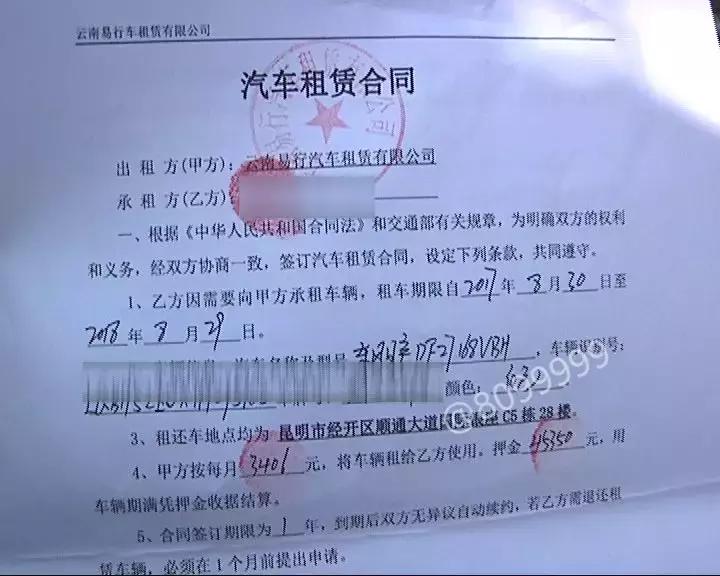 云南易行车租赁有限公司
汽车租赁合同
出 租 方(甲方)：云南易行汽车租赁有限公司
承 租 方(乙方)：
一、根据《中华人民共和国合同法》和交通部有关规章，为明确双方的权利
和义务，经双方协商一致，签订汽车租赁合同，设定下列条款，共同遵守。
1、乙方因需要向甲方承租车辆，租车期限自2017年8月30日至
2018年8月29日。
，车辆识别号：
颜色：
3、租还车地点均为 昆明市经开区顺通大道 C5栋28楼。
4、甲方按每月3401元，将车辆租给乙方使用。押金45350元，用
车辆期满凭押金收据结算。
5、合同签订期限为1年，到期后双方无异议自动续约，若乙方需退还租
赁车辆，必须在1个月前提出申请。
@8099999